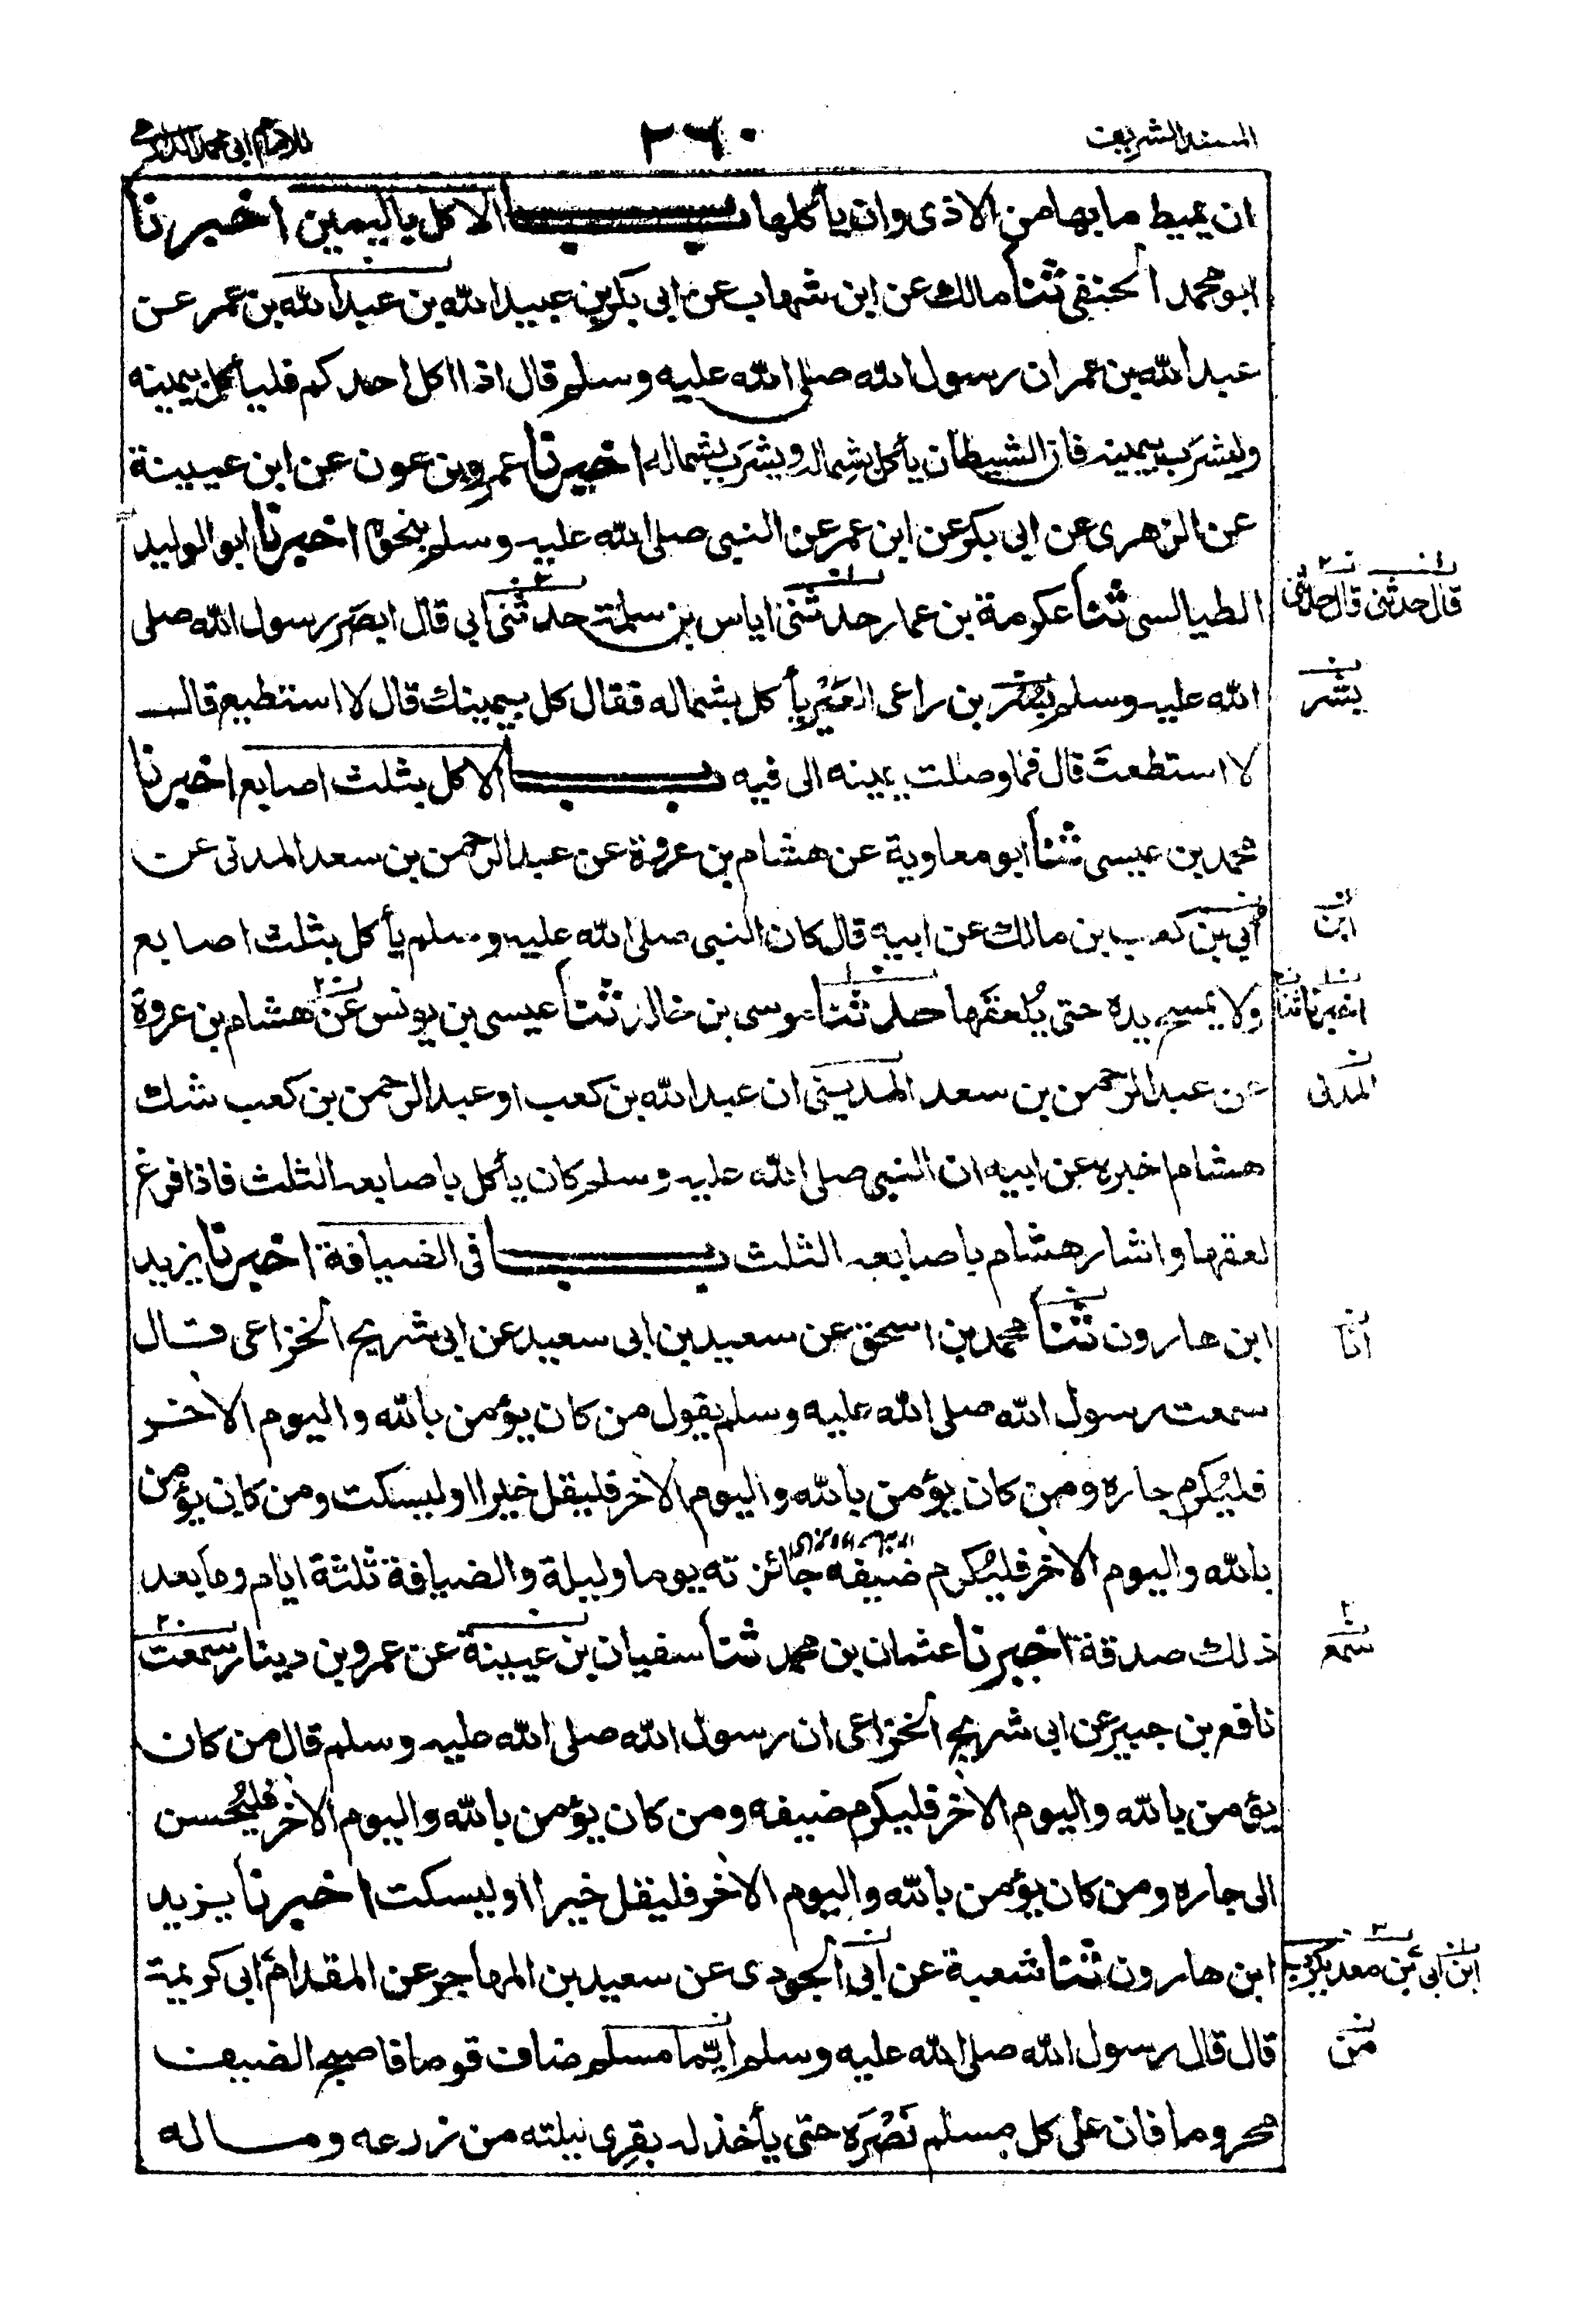 المسند الشريف
٢٦٠
للامام ابی محمد الدارمی
ان يميط ما بها من الاذى وان يأكلها باب الاكل باليمين اخبرنا
ابو محمد الحنفى ثنا مالك عن ابن شهاب عن ابى بكر بن عبيد الله بن عبد الله بن عمر عن
عبد الله بن عمر ان رسول الله صلى الله عليه وسلم قال اذا اكل احدكم فليأكل بيمينه
وليشرب بيمينه فان الشيطان يأكل بشماله ويشرب بشماله اخبرنا عمرو بن عون عن ابن عيينة
عن الزهرى عن ابى بكر عن ابن عمر عن النبى صلى الله عليه وسلم بنحوه اخبرنا ابو الوليد
الطيالسى ثنا عكرمة بن عمار حدثنى اياس بن سلمة حدثنى ابى قال ابصر رسول الله صلى
قال حدثنى قال حدثنى
الله عليه وسلم بسر بن راعى العير يأكل بشماله فقال كل بيمينك قال لا استطيع قال
بشر
لا استطعت قال فما وصلت يمينه الى فيه باب الاكل بثلث اصابع اخبرنا
محمد بن عيسى ثنا ابو معاوية عن هشام بن عروة عن عبد الرحمن بن سعد المدنى عن
أبى بن كعب بن مالك عن ابيه قال كان النبى صلى الله عليه وسلم يأكل بثلث اصابع
ابن
ولا يمسح يده حتى يُلعقَها حدثنا موسى بن خالد ثنا عيسى بن يونس عن هشام بن عروة
اخبرنا ثنا
عن عبد الرحمن بن سعد المدينى ان عبد الله بن كعب او عبد الرحمن بن كعب شك
المدنى
هشام اخبره عن ابيه ان النبى صلى الله عليه وسلم كان يأكل باصابعه الثلث فاذا فرغ
لعقها واشار هشام باصابعه الثلث باب فى الضيافة اخبرنا يزيد
ابن هارون ثنا محمد بن اسحق عن سعيد بن ابى سعيد عن ابى شريح الخزاعى قال
انا
سمعت رسول الله صلى الله عليه وسلم يقول من كان يؤمن بالله واليوم الاخر
فليُكرم جاره ومن كان يؤمن بالله واليوم الاخر فليقل خيرا او ليسكت ومن كان يؤمن
بالله واليوم الاخر فليُكرم ضيفه جائزته يوما وليلة والضيافة ثلثة ايام وما بعد
ذلك صدقة اخبرنا عثمان بن محمد ثنا سفيان بن عيينة عن عمرو بن دينار سمعت
سمع
نافع بن جبير عن ابى شريح الخزاعى ان رسول الله صلى الله عليه وسلم قال من كان
يؤمن بالله واليوم الاخر فليكرم ضيفه ومن كان يؤمن بالله واليوم الاخر فليُحسن
الى جاره ومن كان يؤمن بالله واليوم الاخر فليقل خيرا او ليسكت اخبرنا يزيد
ابن هارون ثنا شعبة عن ابى الجودى عن سعيد بن المهاجر عن المقدام ابى كريمة
ابن ابى بن معديكرب
قال قال رسول الله صلى الله عليه وسلم ايّما مسلم ضاف قوما فاصبح الضيف
من
محروما فان على كل مسلم نَصْرَه حتى يأخذ له بقِرى ليلته من زرعه وماله